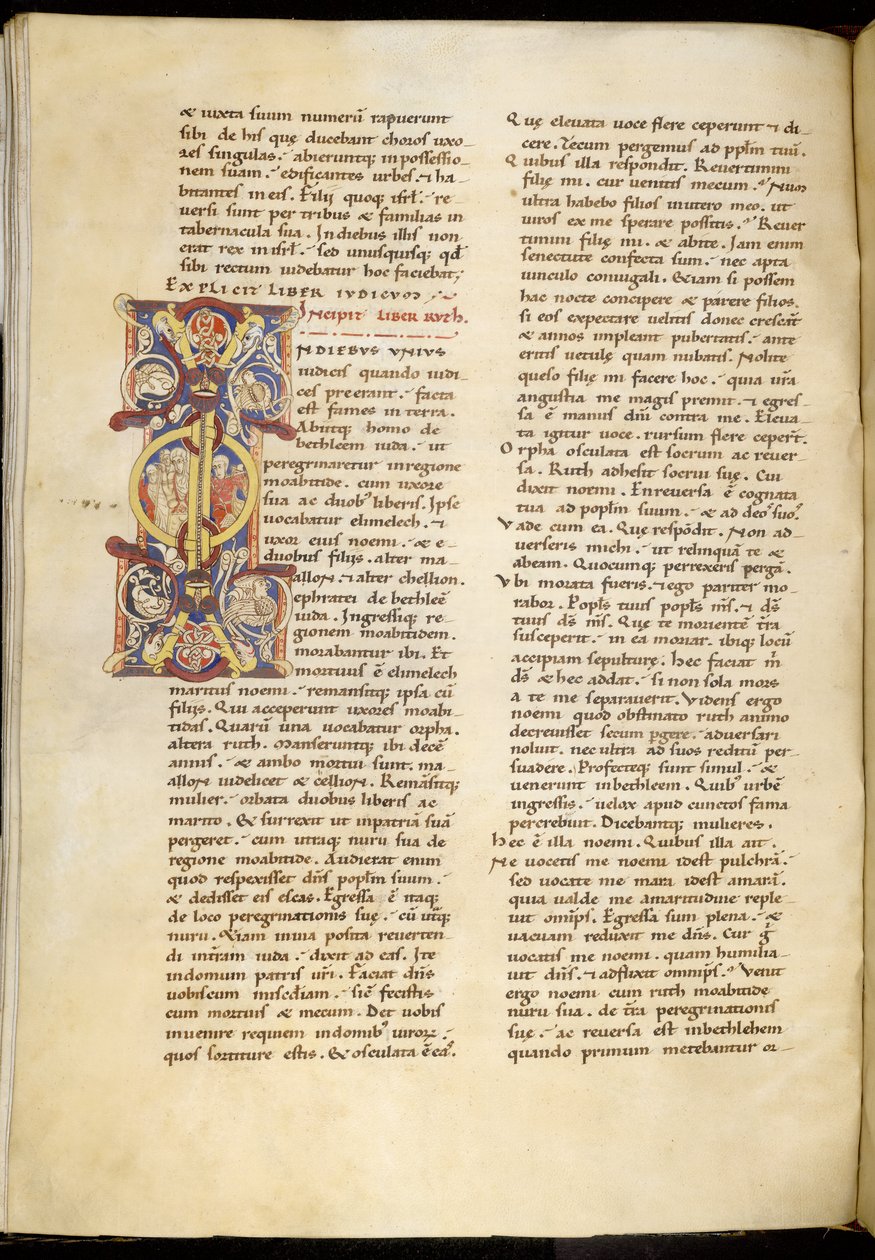 & iuxta suum numerū rapuerunt
sibi de his quę ducebant choros uxo-
res singulas. abieruntq; in possessio-
nem suam. edificantes urbes. & ha-
bitantes in eis. Filii quoq; isrl. re-
uersi sunt per tribus & familias in
tabernacula sua. In diebus illis non
erat rex in isrl. sed unusquisq; qd
sibi rectum uidebatur hoc faciebat;
EXPLICIT LIBER IUDICUM
INCIPIT LIBER RUTH.
IN DIEBUS UNIUS
iudicis quando iudi-
ces preerant. facta
est fames in terra.
Abiitq; homo de
bethleem iuda. ut
peregrinaretur in regione
moabitide. cum uxore
sua ac duob; liberis. Ipse
uocabatur elimelech. &
uxor eius noemi. & e
duobus filiis. alter ma-
allon. & alter chellion.
ephratei de bethleē
iuda. Ingressiq; re-
gionem moabitidem.
morabantur ibi. Et
mortuus ē elimelech
maritus noemi. remansitq; ipsa cū
filiis. Qui acceperunt uxores moabi-
tidas. Quarū una uocabatur orpha.
altera ruth. Manseruntq; ibi decē
annis. & ambo mortui sunt. ma-
allon uidelicet & cellion. Remāsitq;
mulier. orbata duobus liberis ac
marito. & surrexit ut in patriā suā
pergeret. cum utraq; nuru sua de
regione moabitide. Audierat enim
quod respexisset dn̄s popl̄m suum.
& dedisset eis escas. Egressa ē itaq;
de loco peregrinationis suę. cū utq;
nuru. & iam in uia posita reuerten-
di in trām iuda. dixit ad eas. Ite
in domum patris ur̄i. Faciat dn̄s
uobiscum misc̄diam. sic̄ fecistis
cum mortuis & mecum. Det uobis
inuenire requiem in domib; uiroꝝ.
quos sortiture estis. & osculata ē eas.
Quę eleuata uoce flere ceperunt & di-
cere. Tecum pergemus ad ppl̄m tuū.
Quibus illa respondit. Reuertimini
filię mi. cur uenitis mecum. Num
ultra habebo filios in utero meo. ut
uiros ex me sperare possitis. Reuer
timini filię mi. & abite. Iam enim
senectute confecta sum. nec apta
uinculo coniugali. & iam si possem
hac nocte concipere & parere filios.
si eos expectare uelitis donec crescāt
& annos impleant pubertatis. ante
eritis uetulę quam nubatis. Nolite
queso filię mi facere hoc. quia ur̄a
angustia me magis premit. & egres-
sa ē manus dn̄i contra me. Eleua-
ta igitur uoce. rursum flere ceper̄t.
Orpha osculata est socrum ac reuer-
sa. Ruth adhesit socrui suę. Cui
dixit noemi. En reuersa ē cognata
tua ad popl̄m suum. & ad deos suos.
Vade cum ea. Quę respōdit. Non ad-
uerseris michi. ut relinquā te &
abeam. Quocumq; perrexeris pergā.
Vbi morata fueris. & ego pariter mo-
rabor. Popl̄s tuus popl̄s ms̄. & ds̄
tuus ds̄ ms̄. Que te morientē tr̄a
susceperit. in ea moriar. ibiq; locū
accipiam sepulturę. Hec faciat m̄
ds̄ & hec addat. si non sola mors
a te me separauerit. Videns ergo
noemi quod obstinato ruth animo
decreuisset secum pgere. aduersari
noluit. nec ultra ad suos reditū per-
suadere. Profecteq; sunt simul. &
uenerunt in bethleem. Quib; urbē
ingressis. uelox apud cunctos fama
percrebuit. Dicebantq; mulieres.
Hec ē illa noemi. Quibus illa ait.
Ne uocetis me noemi idest pulchrā.
sed uocate me mara idest amarā.
quia ualde me amaritudine reple-
uit omip̄s. Egressa sum plena. &
uacuam reduxit me dn̄s. Cur g̊
uocatis me noemi. quam humilia-
uit dn̄s. & adflixit omnip̄s. Venit
ergo noemi cum ruth moabitide
nuru sua. de tr̄a peregrinationis
suę. ac reuersa est in bethlehem
quando primum metebantur or-